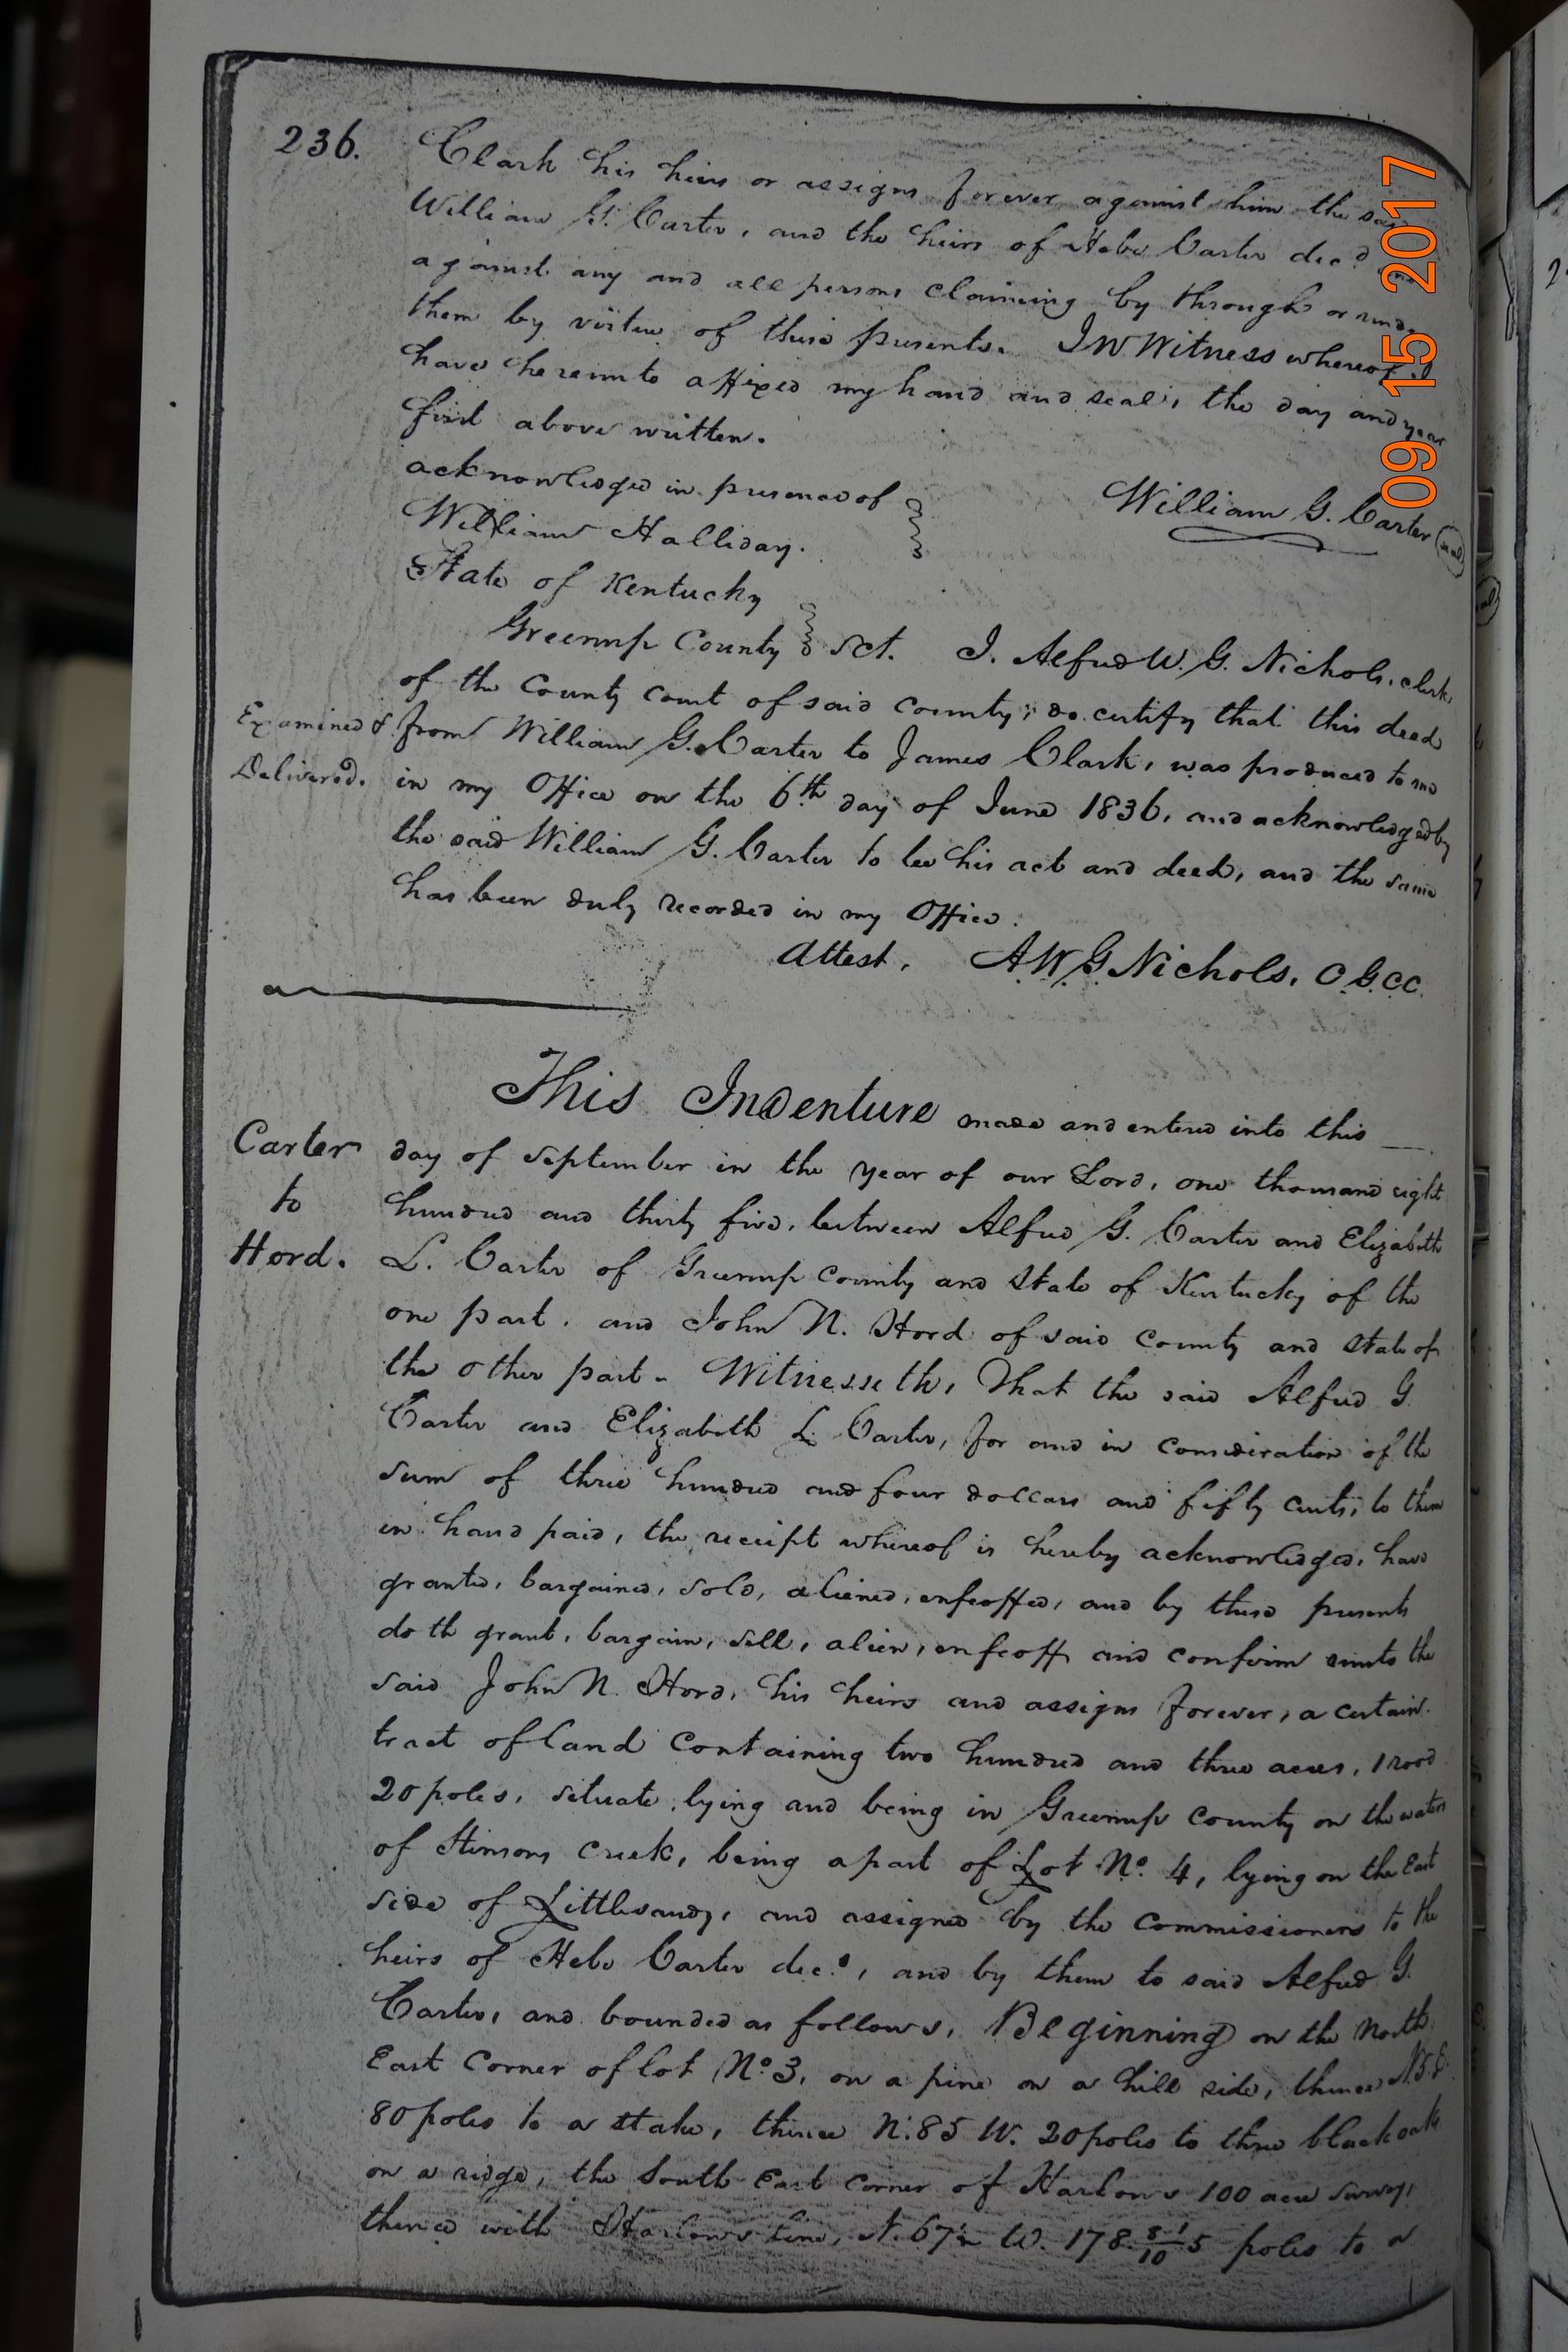 236.
Clark his heirs or assigns forever against him the said
William G. Carter, and the heirs of Hebe Carter dec.d
against any and all persons claiming by through or under
them by virtue of these presents. In Witness whereof I
have hereunto affixed my hand and seal, the day and year
first above written.
acknowledged in presence of
William G. Carter seal
William Halliday.
State of Kentucky
Greenup County Sct. I. Alfred W. G. Nichols, clerk
of the County court of said county, do certify that this deed
Examined & from William G. Carter to James Clark, was produced to me
Delivered. in my Office on the 6th day of June 1836, and acknowledged by
the said William G. Carter to be his act and deed, and the same
has been duly recorded in my Office.
Attest, A. W. G. Nichols, C.G.C.C.
This Indenture made and entered into this —
Carter day of September in the year of our Lord, one thousand eight
to hundred and thirty five, between Alfred G. Carter and Elizabeth
Hord. L. Carter of Greenup County and State of Kentucky of the
one part, and John N. Hord of said County and State of
the other part. Witnesseth, That the said Alfred G
Carter and Elizabeth L. Carter, for and in consideration of the
sum of three hundred and four dollars and fifty cents, to them
in hand paid, the receipt whereof is hereby acknowledged, have
granted, bargained, sold, aliened, enfeoffed, and by these presents
doth grant, bargain, sell, alien, enfeoff and confirm unto the
said John N. Hord, his heirs and assigns forever, a certain
tract of land containing two hundred and three acres, 1 rood
20 poles, situate, lying and being in Greenup County on the waters
of Stinsons creek, being a part of Lot No. 4, lying on the East
side of Littlesandy, and assigned by the commissioners to the
heirs of Hebe Carter dec.d, and by them to said Alfred G.
Carter, and bounded as follows, Beginning on the North
East Corner of lot No. 3, on a pine on a hill side, thence N.5.E.
80 poles to a stake, thence N.85 W. 20 poles to three black oaks
on a ridge, the South East corner of Harlows 100 acre survey,
thence with Harlows line, N. 67½ W. 178. poles to a
09 15 2017